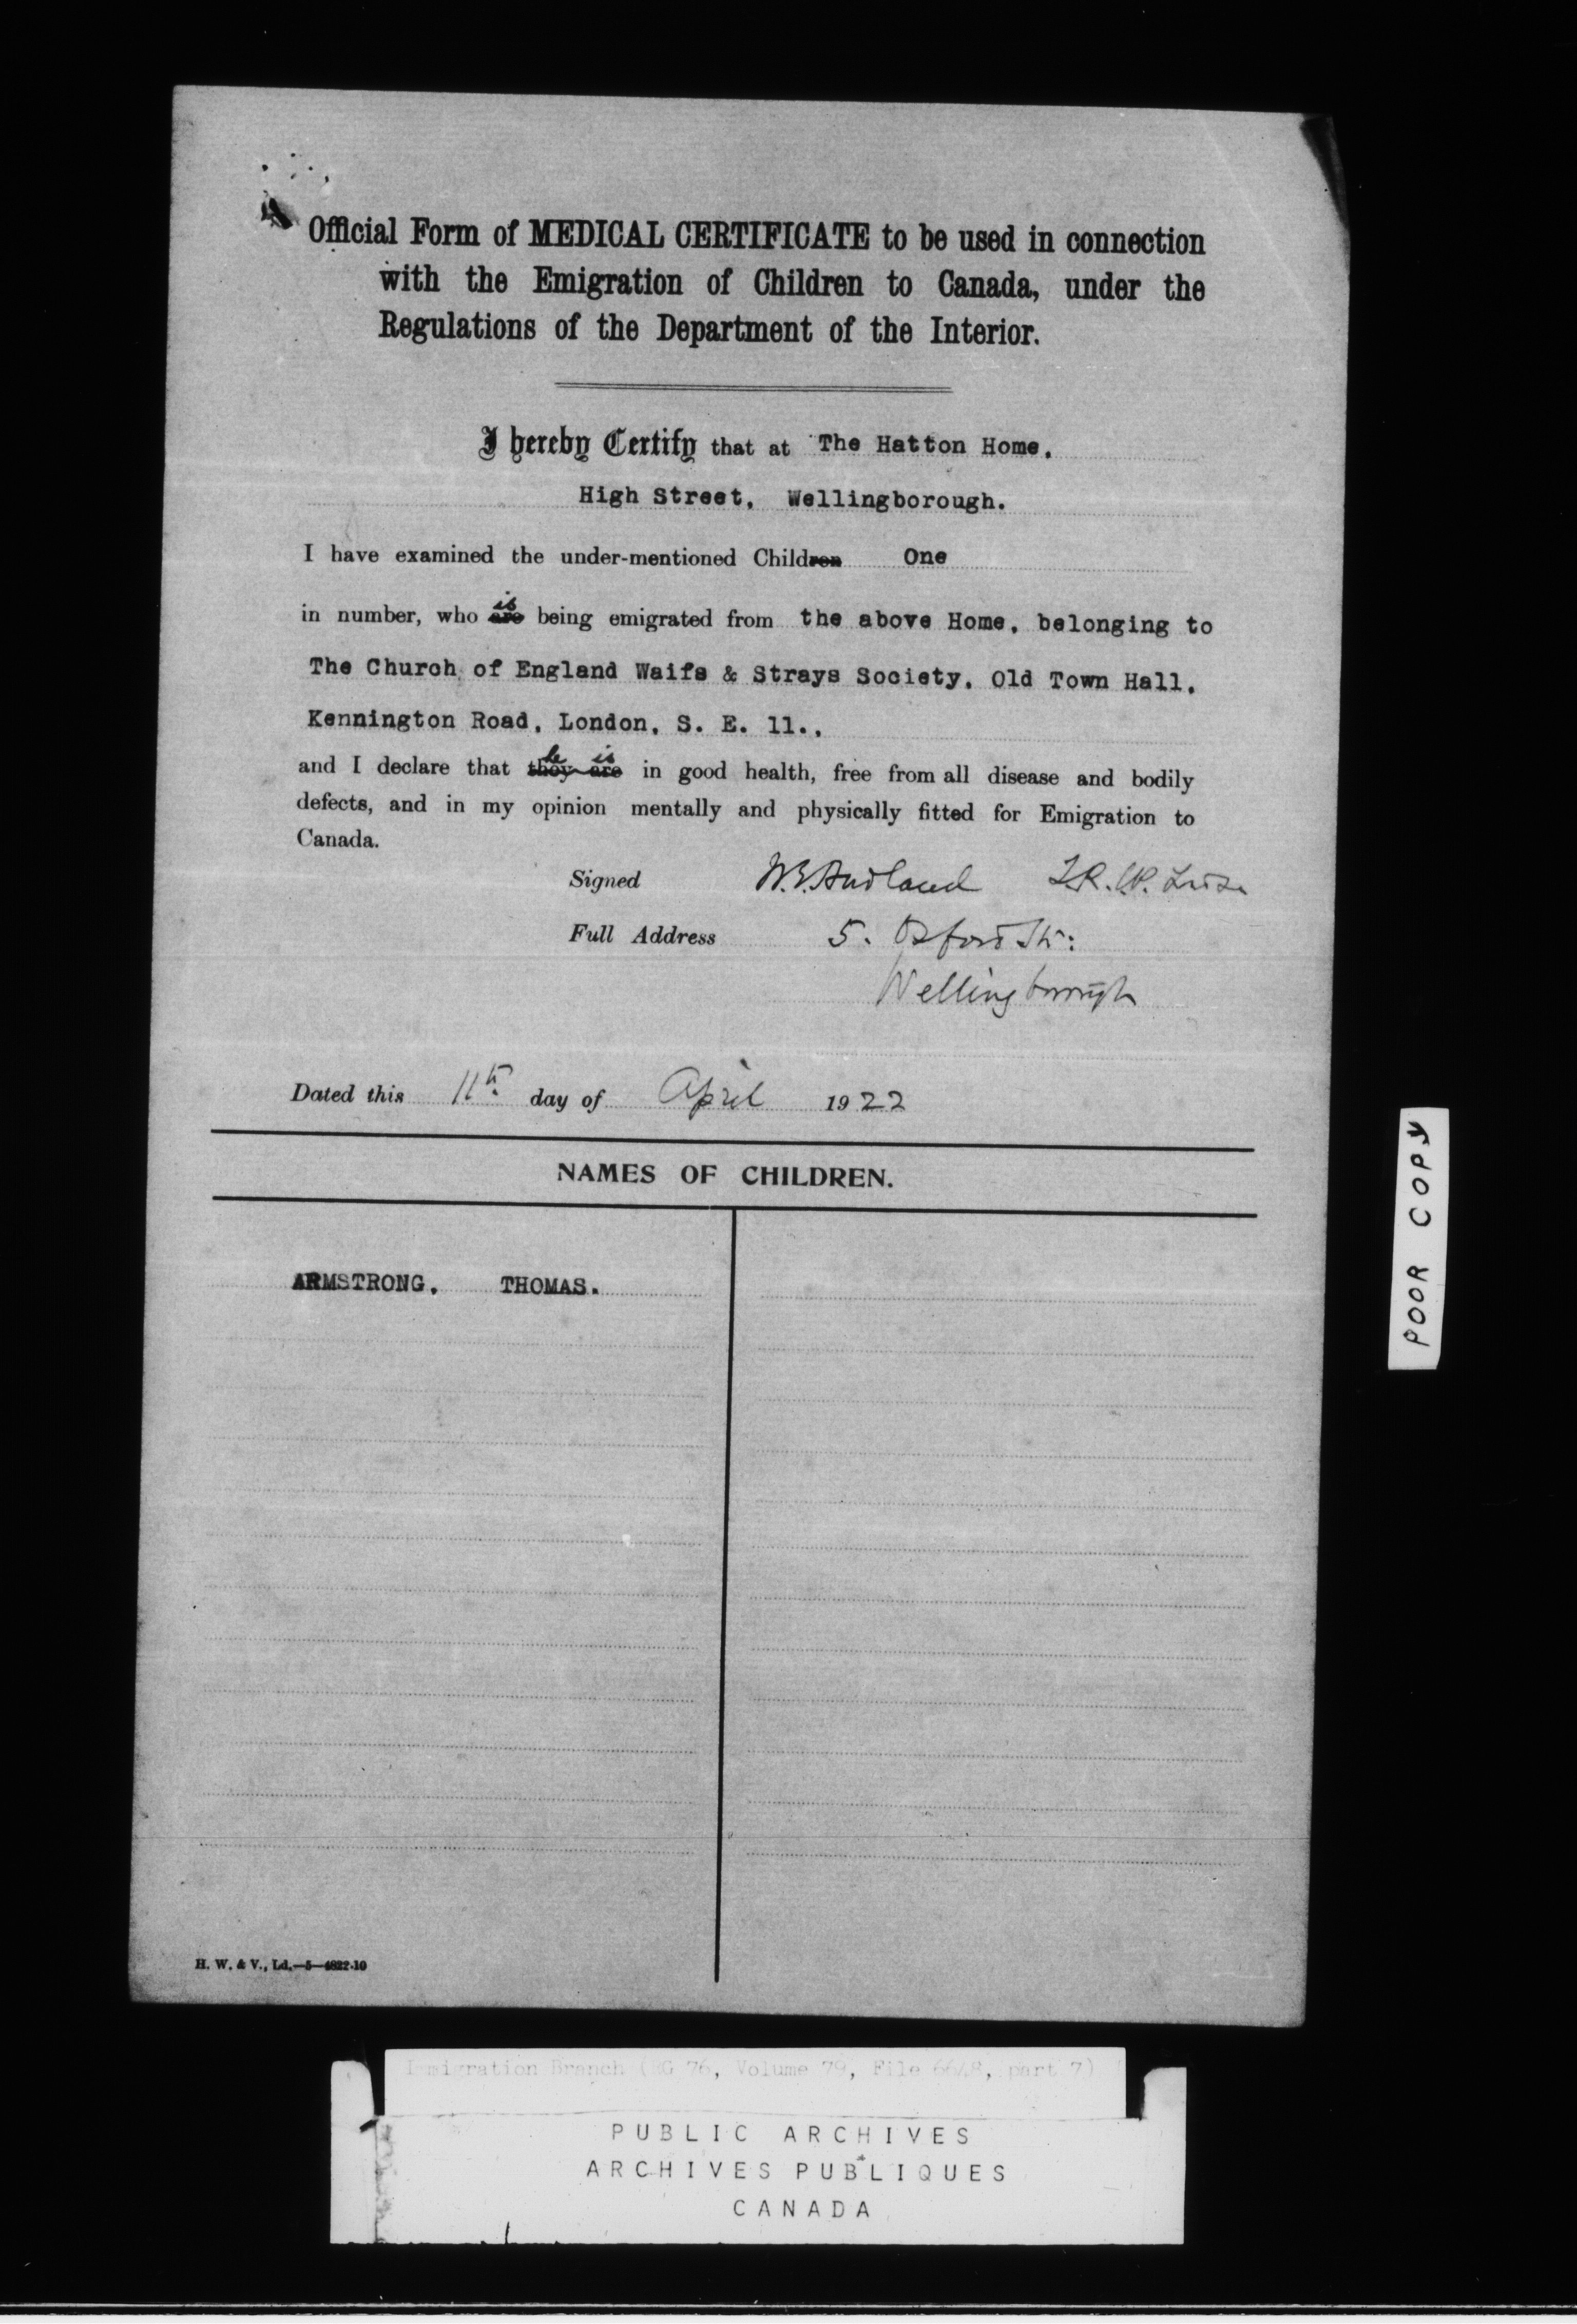 Official Form of MEDICAL CERTIFICATE to be used in connection
with the Emigration of Children to Canada, under the
Regulations of the Department of the Interior.
I hereby Certify that at The Hatton Home,
High Street, Wellingborough.
I have examined the under-mentioned Children One
in number, who are is being emigrated from the above Home, belonging to
The Church of England Waifs & Strays Society, Old Town Hall,
Kennington Road, London, S. E. 11.,
and I declare that they are he is in good health, free from all disease and bodily
defects, and in my opinion mentally and physically fitted for Emigration to
Canada.
Signed W.E. Audland L.R.C.P.
Full Address 5. Oxford St:
Wellingborough
Dated this 11th day of April 1922
NAMES OF CHILDREN.
ARMSTRONG, THOMAS.
H. W. & V., Ld.—5—4822-10
POOR COPY
Immigration Branch (RG 76, Volume 79, File 6648, part 7)
PUBLIC ARCHIVES
ARCHIVES PUBLIQUES
CANADA